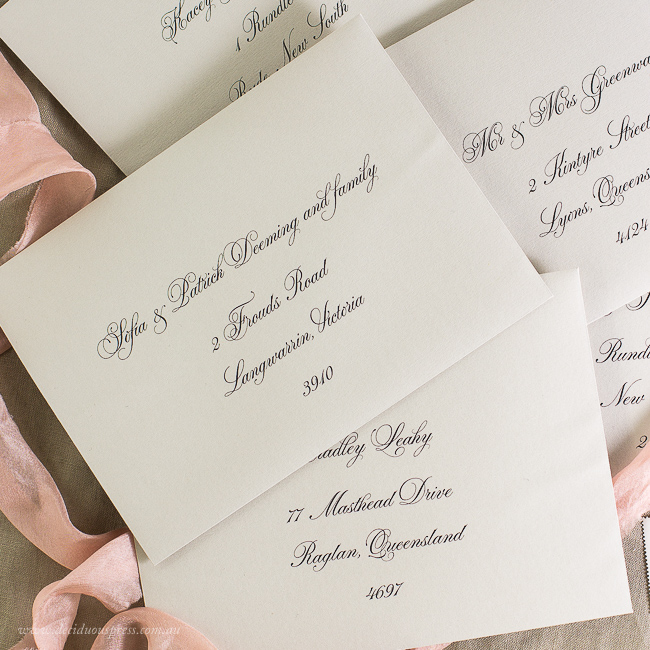 Kacey
1 Rundle
New South
Mr & Mrs Greenwa
2 Kintyre Street
Lyons, Queens
4124
Sofia & Patrick Deeming and family
2 Frouds Road
Langwarrin, Victoria
3910
Rundl
New
2
Bradley Leahy
77 Masthead Drive
Raglan, Queensland
4697
www.deciduouspress.com.au